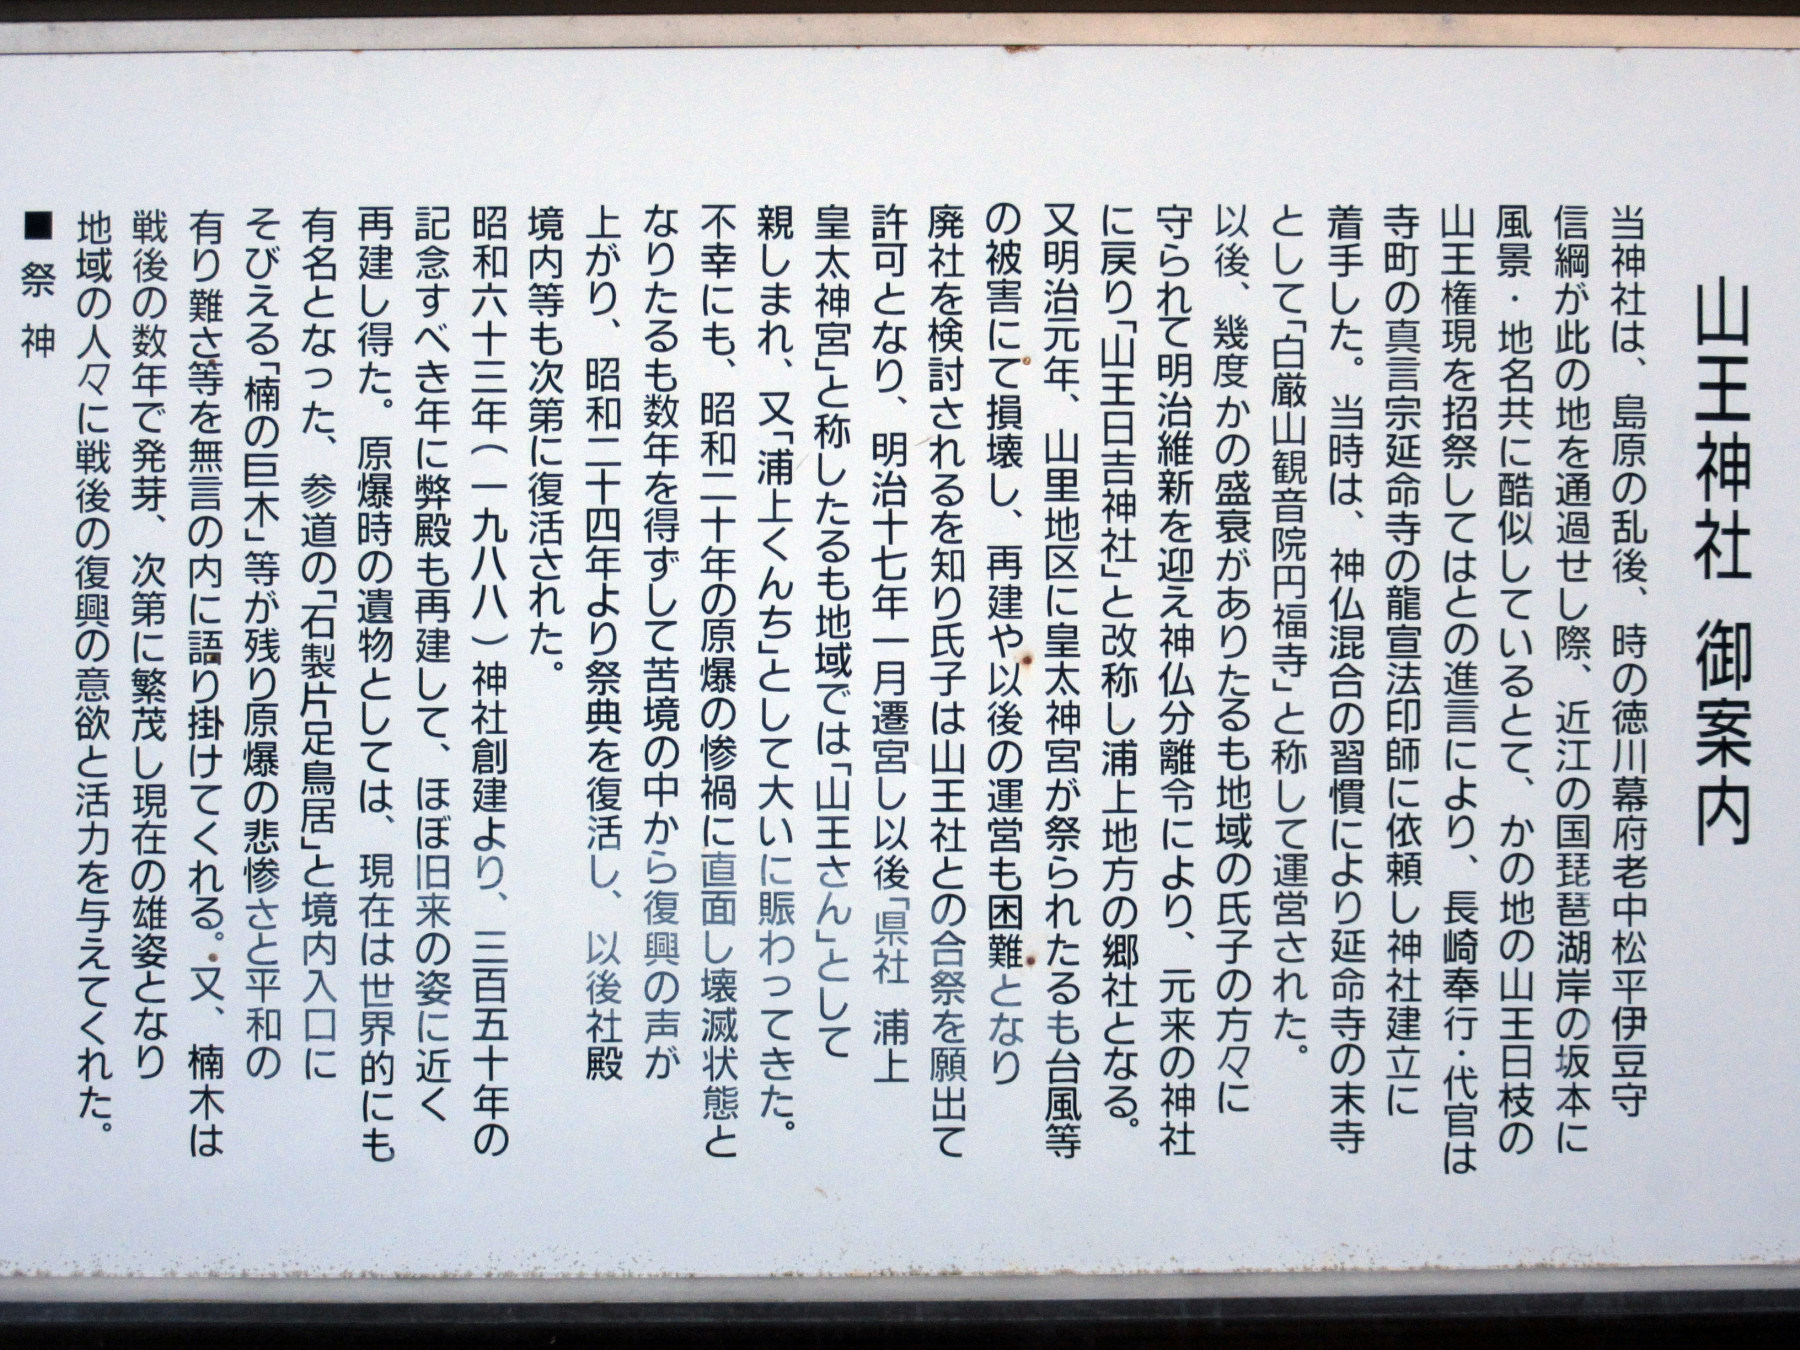 山王神社 御案内
当神社は、島原の乱後、時の徳川幕府老中松平伊豆守
信綱が此の地を通過せし際、近江の国琵琶湖岸の坂本に
風景・地名共に酷似しているとて、かの地の山王日枝の
山王権現を招祭してはとの進言により、長崎奉行・代官は
寺町の真言宗延命寺の龍宣法印師に依頼し神社建立に
着手した。当時は、神仏混合の習慣により延命寺の末寺
として「白厳山観音院円福寺」と称して運営された。
以後、幾度かの盛衰がありたるも地域の氏子の方々に
守られて明治維新を迎え神仏分離令により、元来の神社
に戻り「山王日吉神社」と改称し浦上地方の郷社となる。
又明治元年、山里地区に皇太神宮が祭られたるも台風等
の被害にて損壊し、再建や以後の運営も困難となり
廃社を検討されるを知り氏子は山王社との合祭を願出て
許可となり、明治十七年一月遷宮し以後「県社 浦上
皇太神宮」と称したるも地域では「山王さん」として
親しまれ、又「浦上くんち」として大いに賑わってきた。
不幸にも、昭和二十年の原爆の惨禍に直面し壊滅状態と
なりたるも数年を得ずして苦境の中から復興の声が
上がり、昭和二十四年より祭典を復活し、以後社殿
境内等も次第に復活された。
昭和六十三年(一九八八)神社創建より、三百五十年の
記念すべき年に弊殿も再建して、ほぼ旧来の姿に近く
再建し得た。原爆時の遺物としては、現在は世界的にも
有名となった、参道の「石製片足鳥居」と境内入口に
そびえる「楠の巨木」等が残り原爆の悲惨さと平和の
有り難さ等を無言の内に語り掛けてくれる。又、楠木は
戦後の数年で発芽、次第に繁茂し現在の雄姿となり
地域の人々に戦後の復興の意欲と活力を与えてくれた。
■ 祭 神